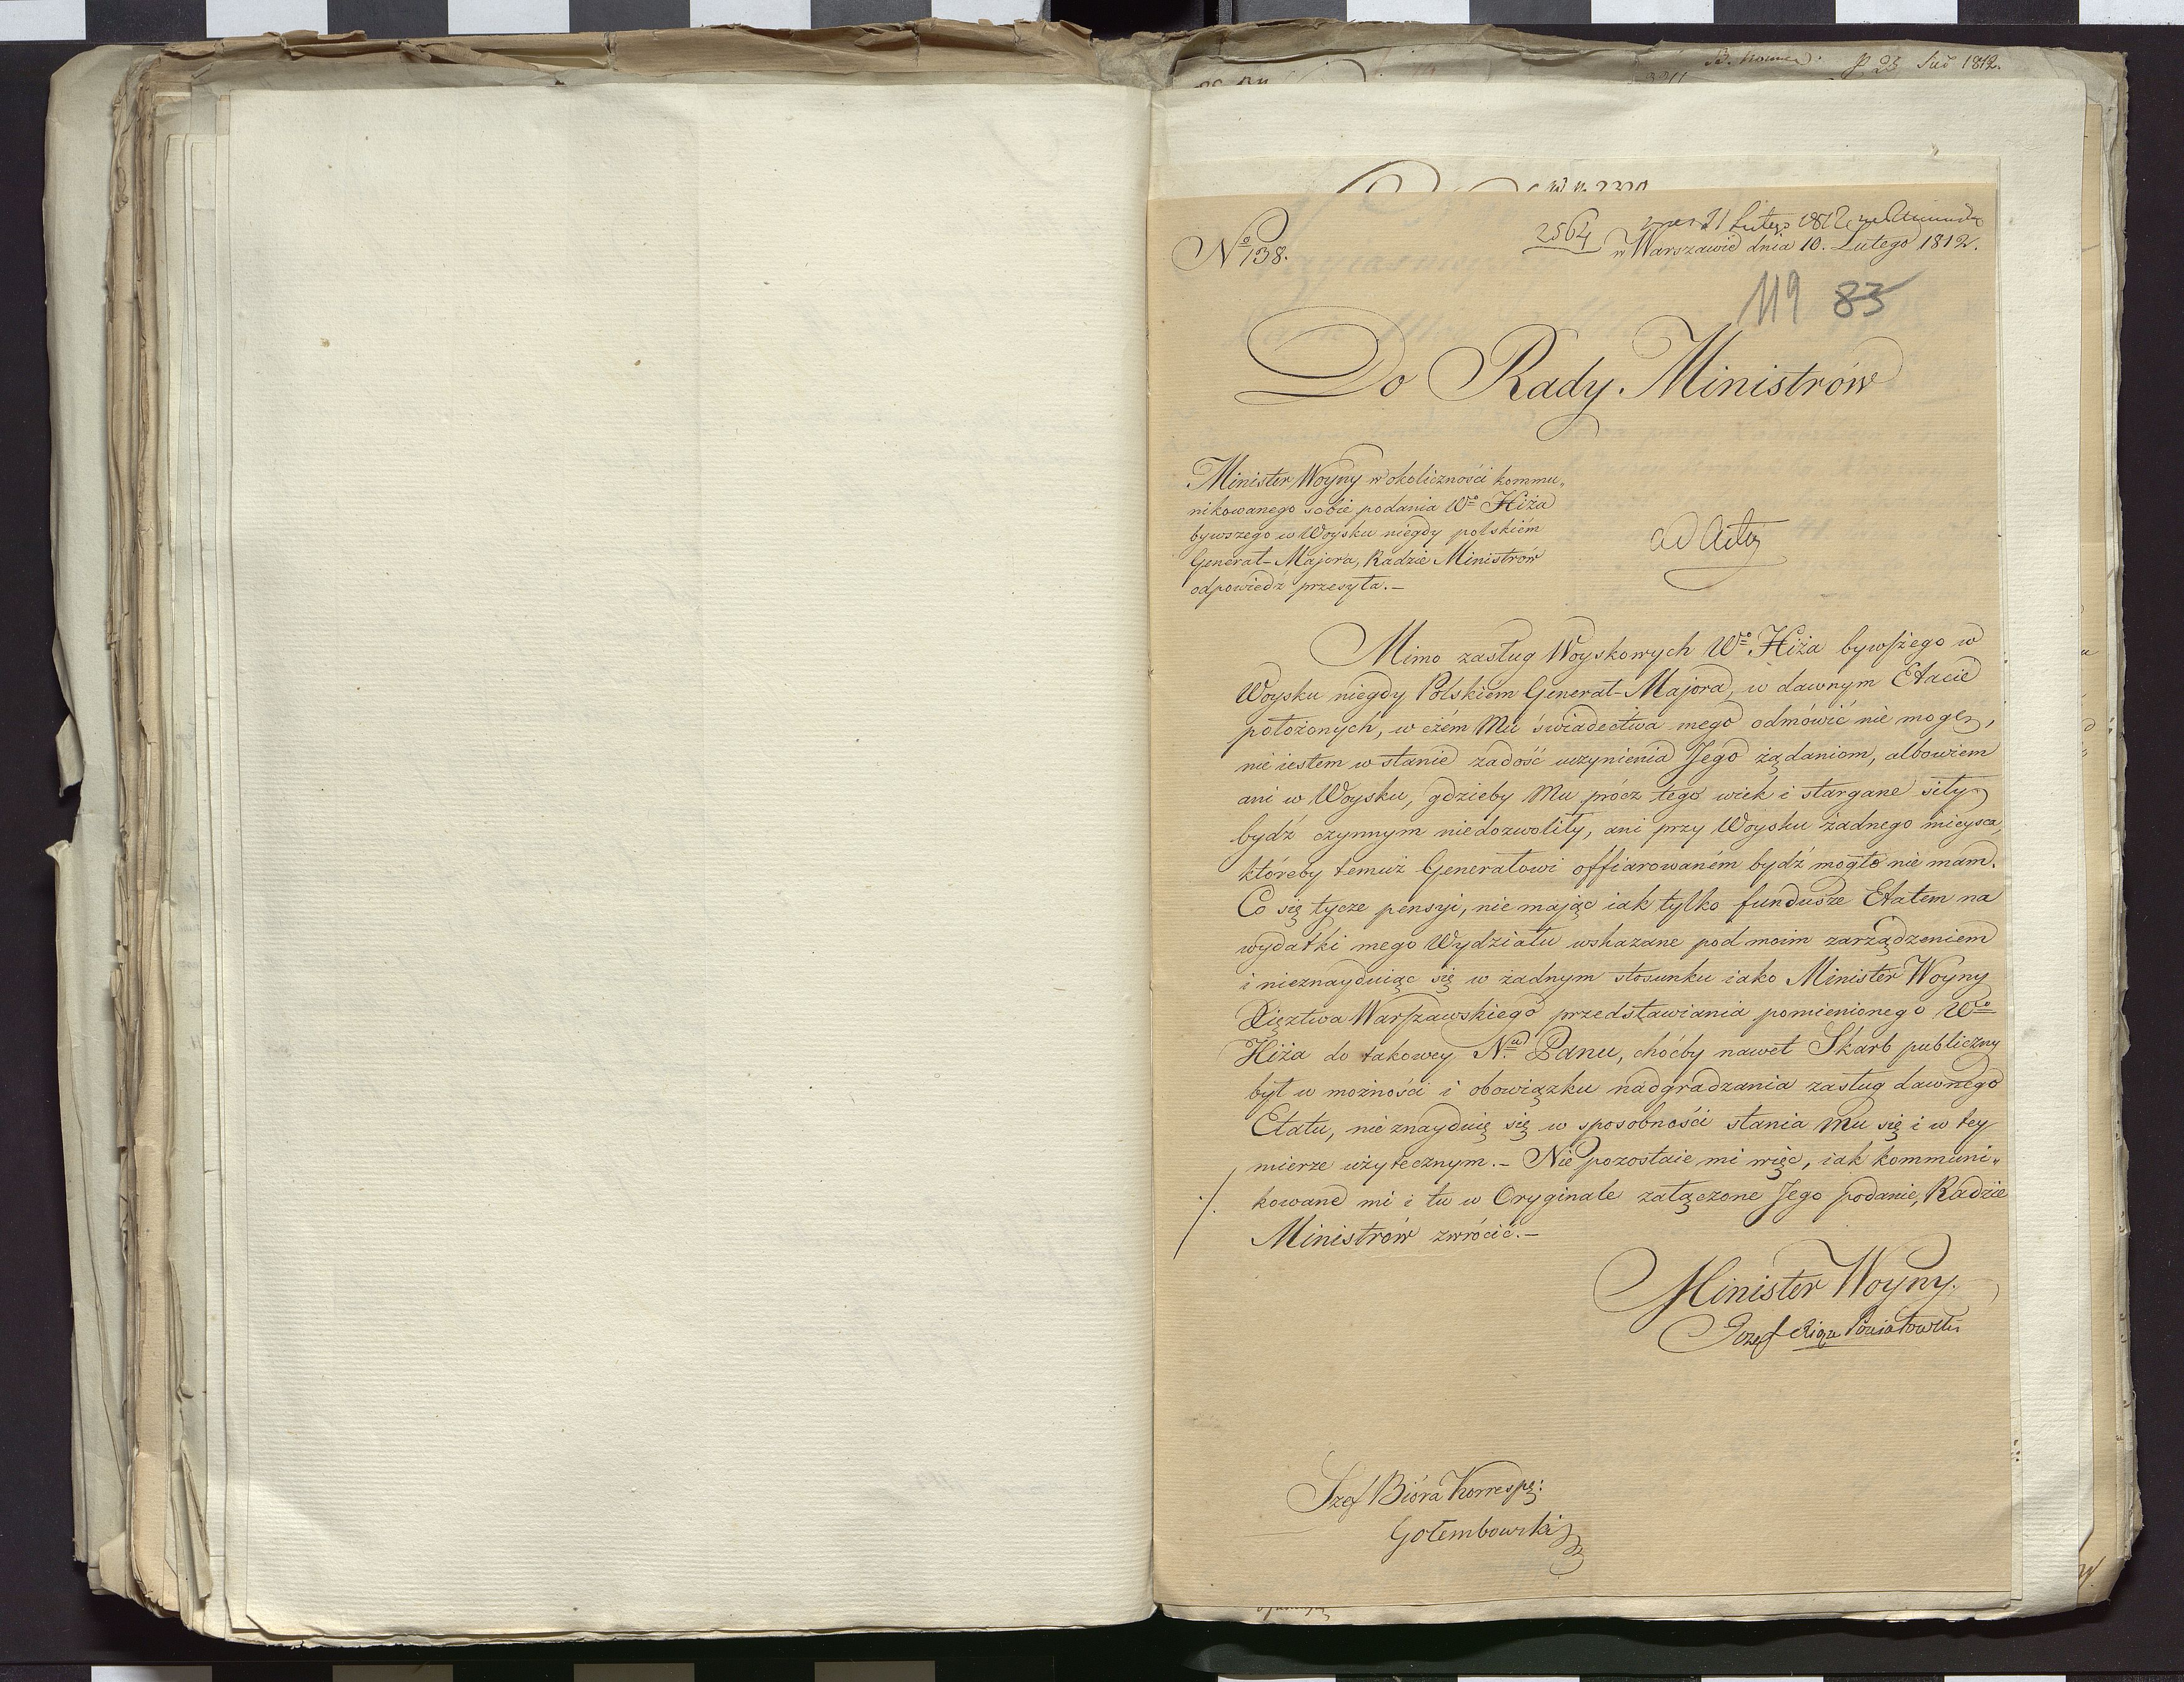 P 23 Lud 1812.
No 138.
2564 21 Lutego 1812
w Warszawie dnia 10. Lutego 1812.
119 83
Do Rady Ministrów
Minister Woyny w okoliczności kommu„
nikowanego sobie podania Wo Hiża
bywszego w Woysku niegdy polskiém
Generał-Majora, Radzie Ministrów
odpowiedź przesyła.—
ad Acta
Mimo zasług Woyskowych Wo Hiża bywszego w
Woysku niegdy Polskiém Generał-Majora, w dawnym Etacie
położonych, w czém Mu świadectwa mego odmówić nie mogę,
nie iestem w stanie zadość uczynienia Jego żądaniom, albowiem
ani w Woysku, gdzieby Mu prócz tego wiek i stargane siły
bydź czynnym niedozwoliły, ani przy Woysku żadnego mieysca,
któreby temuż Generałowi offiarowaném bydź mogło nie mam.
Co się tycze pensyi, nie mając iak tylko fundusze Etatem na
wydatki mego Wydziału wskazane pod moim zarządzeniem
i nieznayduiąc się w żadnym stosunku iako Minister Woyny
Xięztwa Warszawskiego przedstawiania pomienionego Wo
Hiża do takowey N.u Panu, choćby nawet Skarb publiczny
był w możności i obowiązku nadgradzania zasług dawnego
Etatu, nie znayduię się w sposobności stania Mu się i w tey
mierze użytecznym.— Nie pozostaie mi więc, iak kommuni„
kowane mi i tu w Oryginale załączone Jego podanie, Radzie
Ministrów zwrócić.—
Minister Woyny.
Jozef Xiąże Poniatowski
Szef Bióra Korresp:
Gołembowski